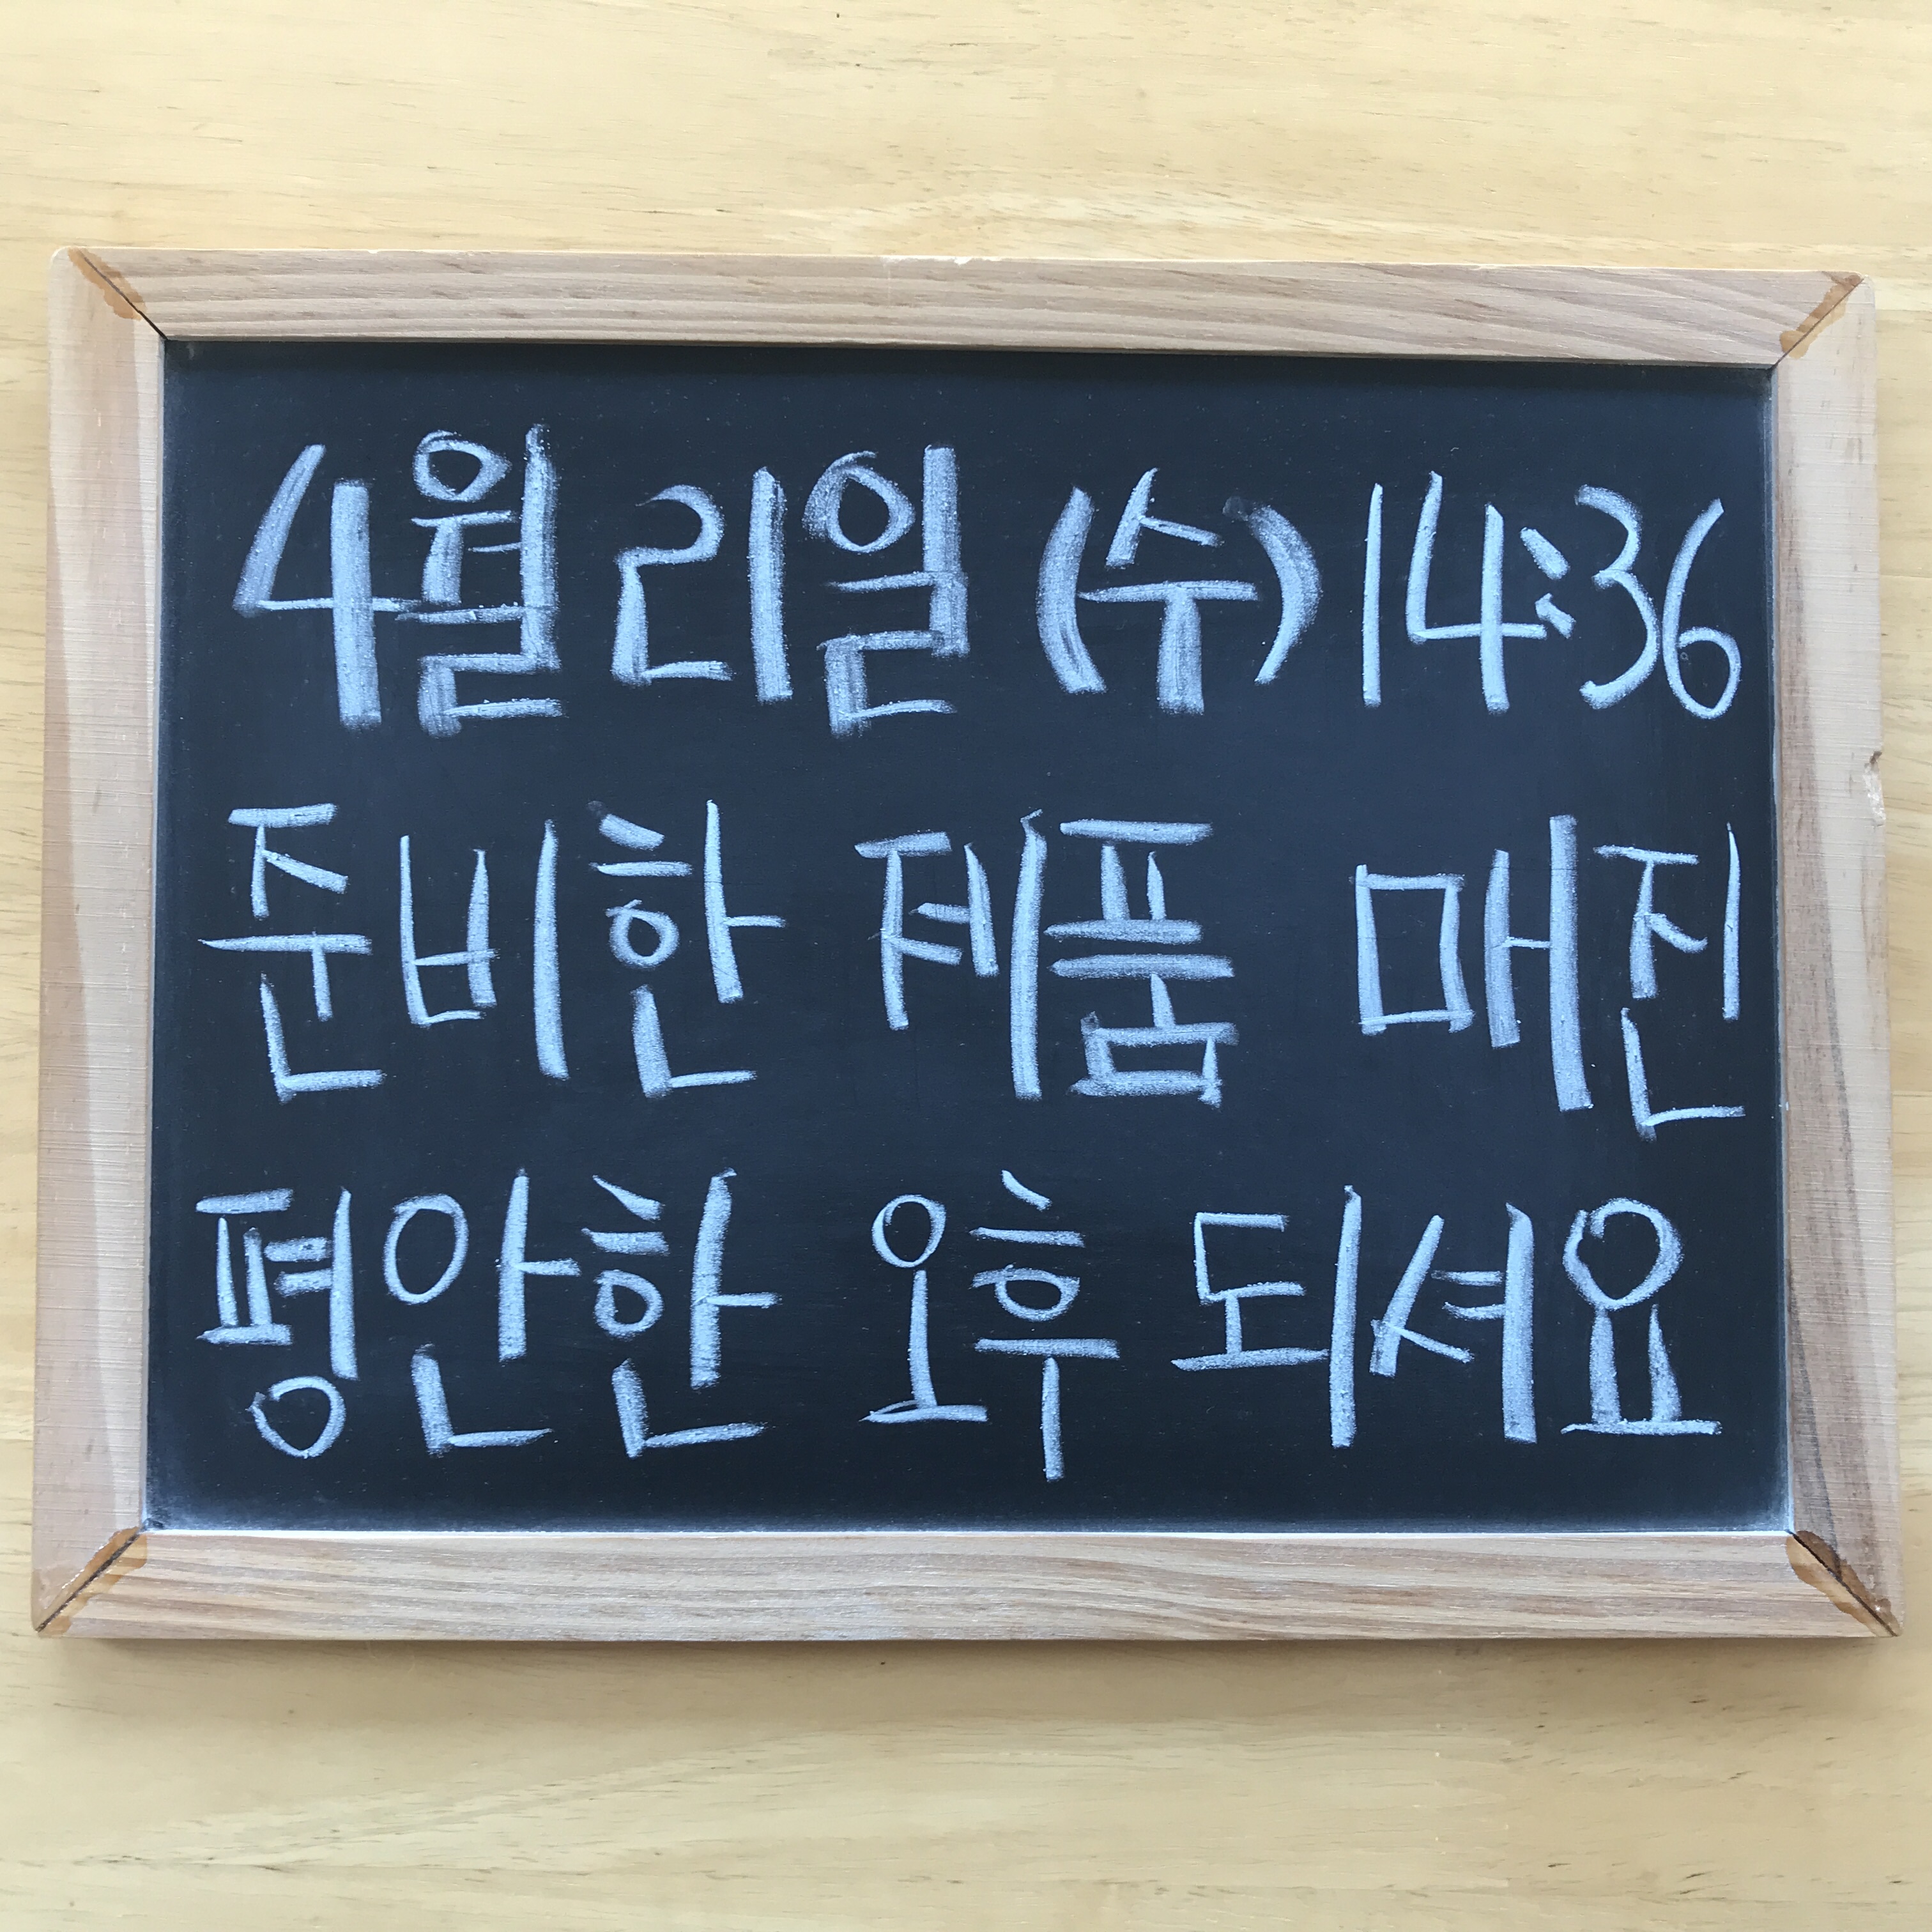 4월 21일 (수) 14:36
준비한 제품 매진
평안한 오후 되셔요